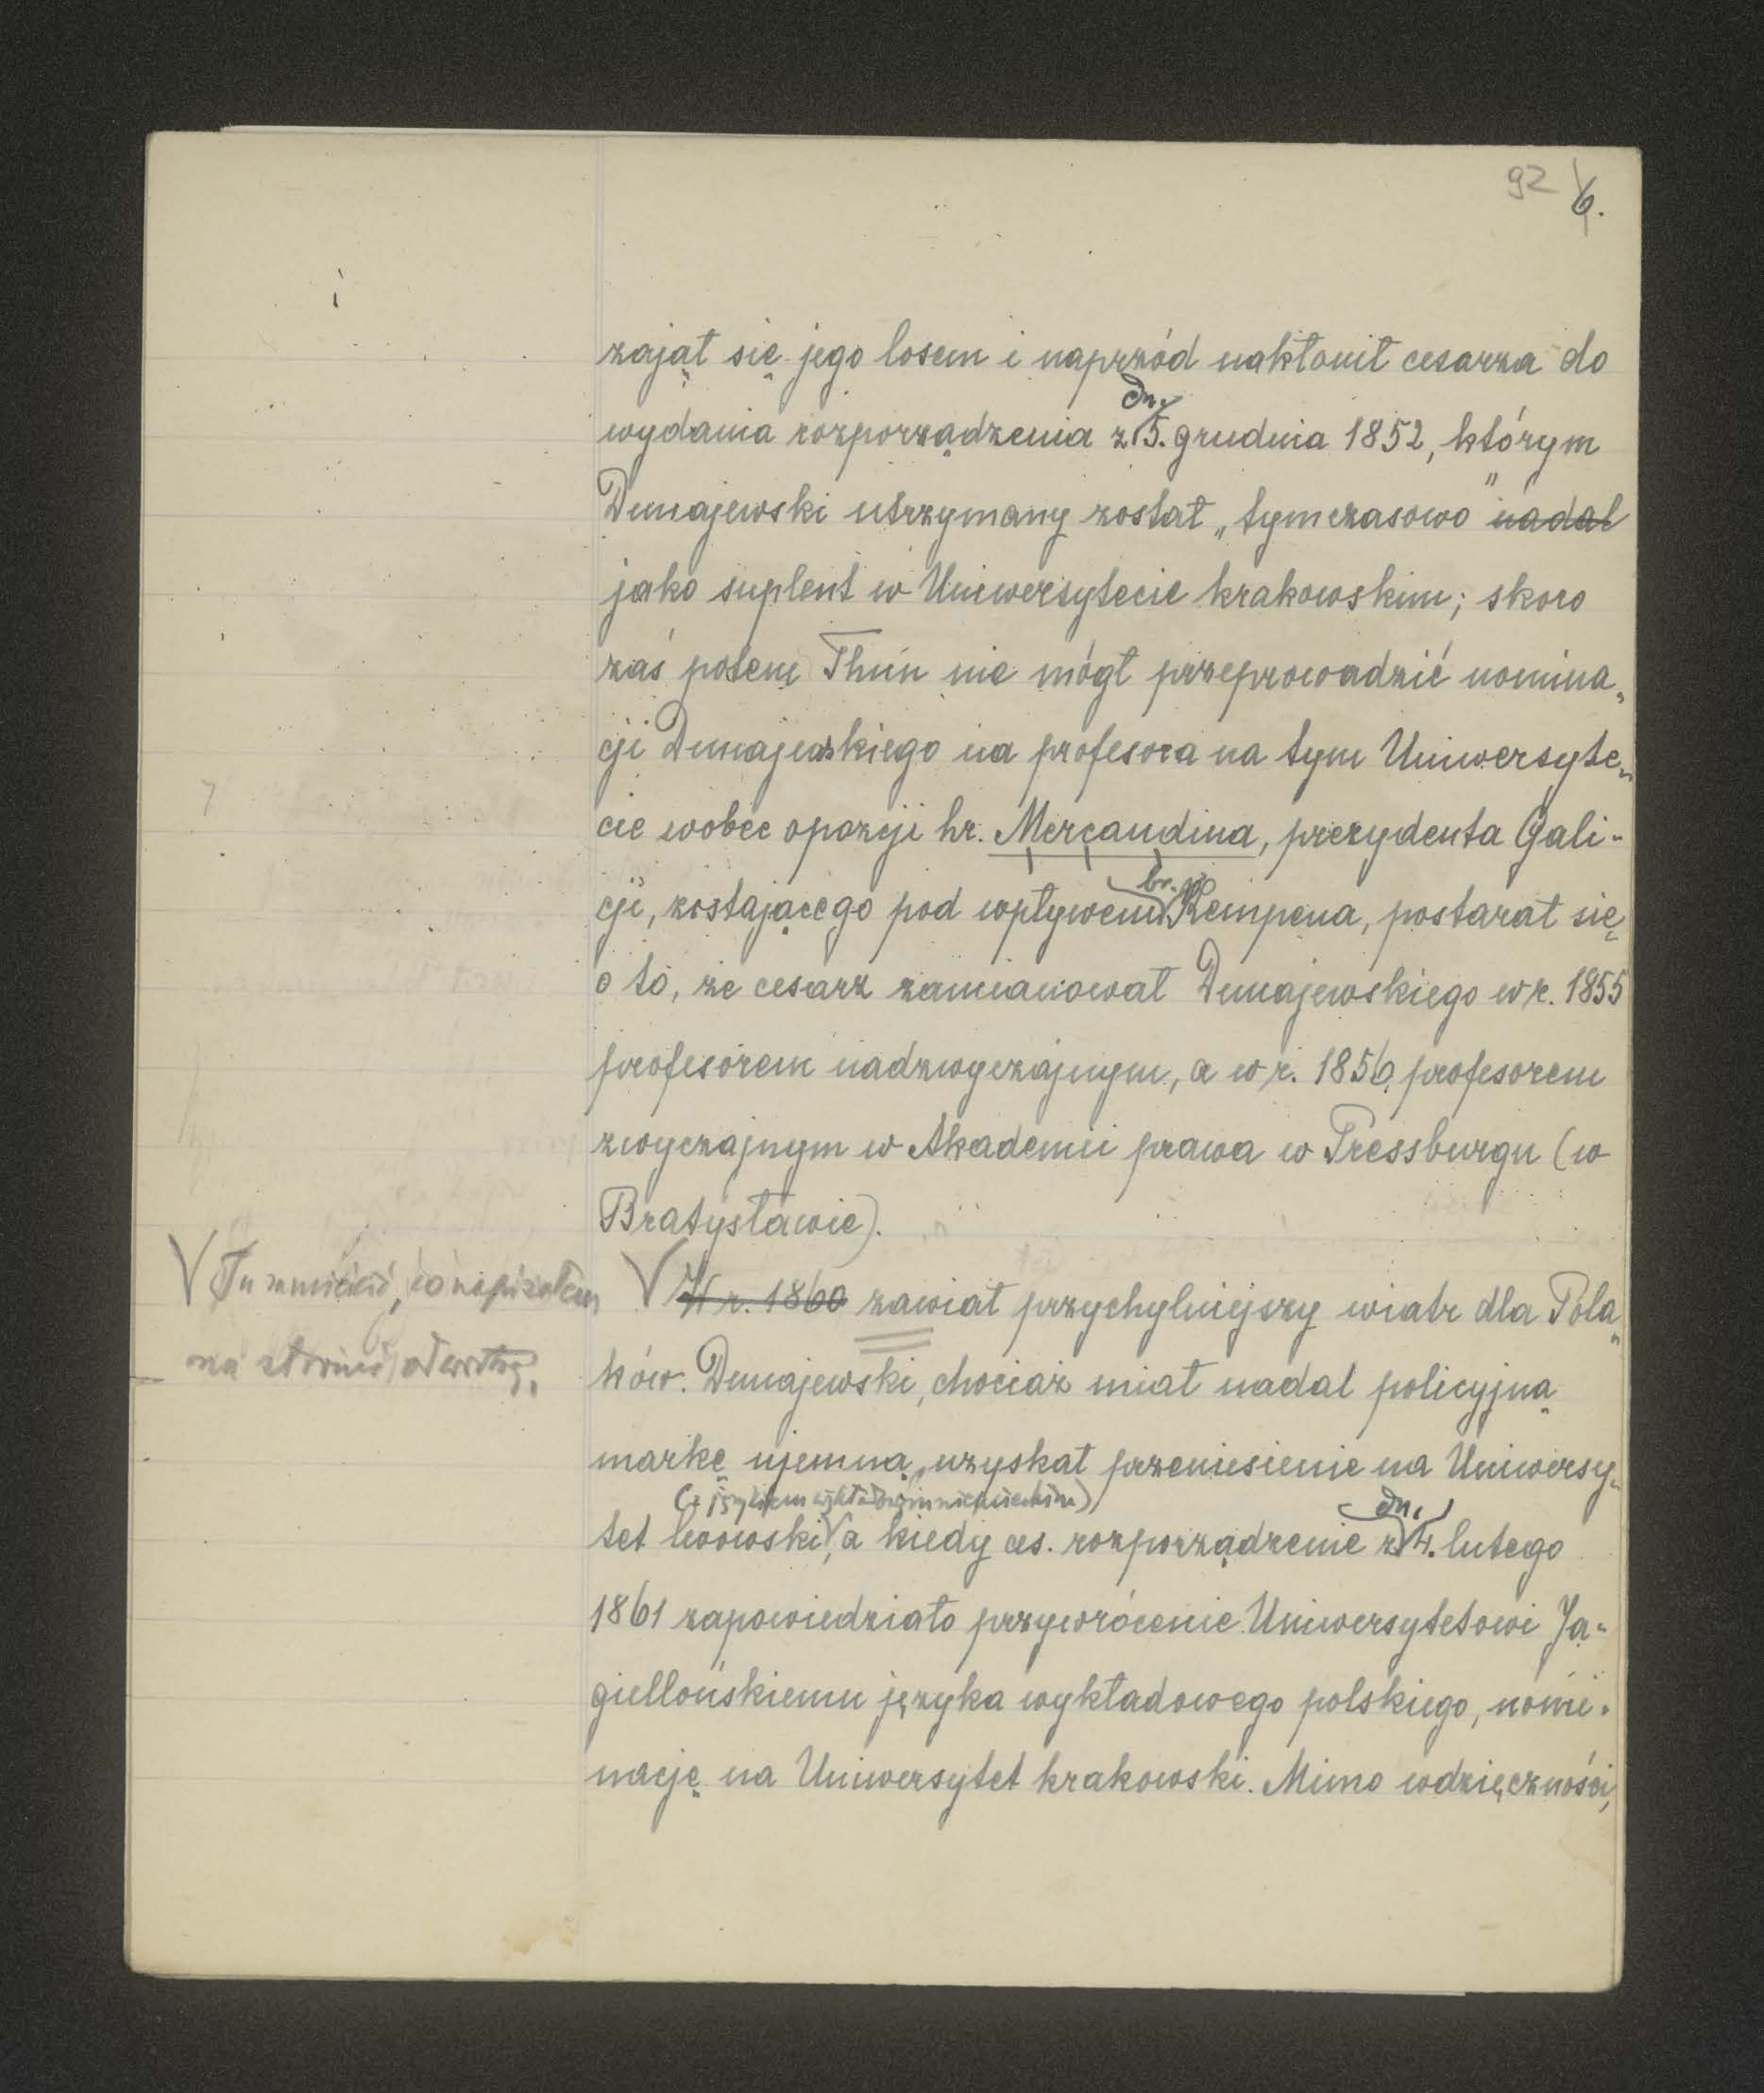 92 6.
zajął się jego losem i naprzód nakłonił cesarza do
dn.
wydania rozporządzenia z 5. grudnia 1852, którym
Dunajewski utrzymany został „tymczasowo" nadal
jako suplent w Uniwersytecie krakowskim; skoro
zaś potem Thun nie mógł przeprowadzić nomina„
cji Dunajewskiego na profesora na tym Uniwersyte„
cie wobec opozcji hr. Mercandina, prezydenta Gali-
br.
cji, zostającego pod wpływem Kempena, postarał się
o to, że cesarz zamianował Dunajewskiego w r. 1855
profesorem nadzwyczajnym, a w r. 1856 profesorem
zwyczajnym w Akademii prawa w Pressburgu (w
Bratysławie).
V Tu umieścić, co napisałem
na stronie odwrotnej.
V W r. 1860 zawiał przychylniejszy wiatr dla Pola„
ków. Dunajewski, chociaż miał nadal policyjną
markę ujemną, uzyskał przeniesienie na Uniwersy„
(z językiem wykładowym niemieckim)
dn.
tet lwowski, a kiedy ces. rozporządzenie z 4. lutego
1861 zapowiedziało przywrócenie Uniwersytetowi Ja-
giellońskiemu języka wykładowego polskiego, nomi-
nację na Uniwersytet krakowski. Mimo wdzięczności,